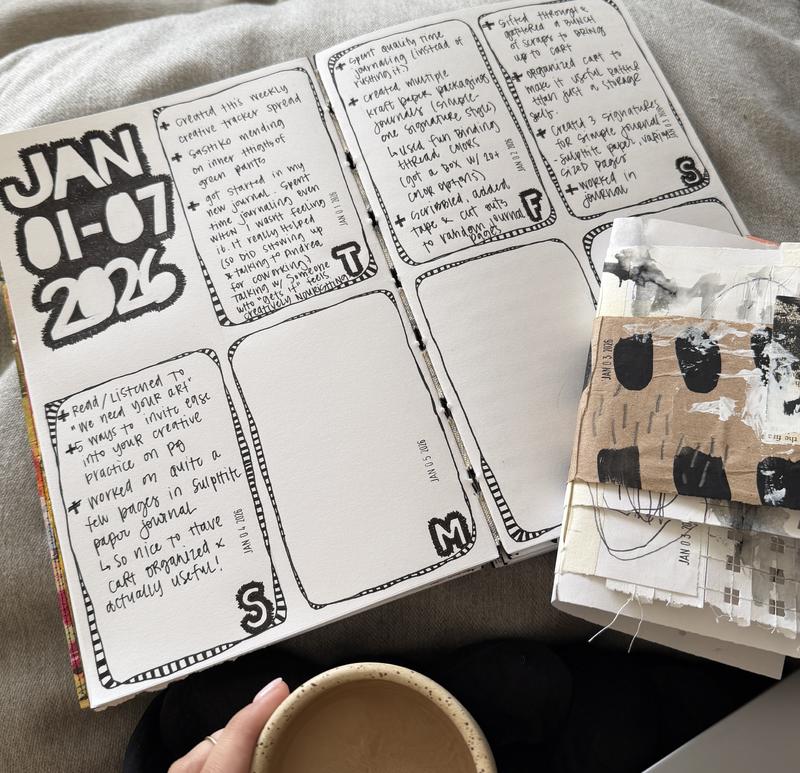 JAN
01-07
2026
+ created this weekly
creative tracker spread
+ sashiko mending
on inner thigh of
green pants
+ got started in my
new journal. spent
time journaling even
when I wasn't feeling
it. it really helped
(so did showing up
& talking to Andrea
for coworking)
talking w/ someone
who "gets it" feels
creatively nourishing
JAN 01 2026
T
+ spent quality time
journaling (instead of
rushing it.)
+ created multiple
kraft paper packaging
journals (simple-
one signature style)
↳ used fun binding
thread colors
(got a box w/ 20+
color options)
+ scribbled, added
tape & cut outs
to random journal
pages
JAN 02 2026
F
+ sifted through &
gathered a bunch
of scraps to bring
up to cart
+ organized cart to
make it useful rather
than just a storage
+ created 3 signatures
for simple journal
- sulphite paper, various
sized pages
+ worked in
journal
S
+ Read/listened to
"we need your art"
+ 5 ways to invite ease
into your creative
practice on
+ worked on quite a
few pages in sulphite
paper journal
↳ so nice to have
cart organized &
actually useful!
JAN 04 2026
S
JAN 05 2026
M
JAN 03 2026
the fire
JAN 03 2026